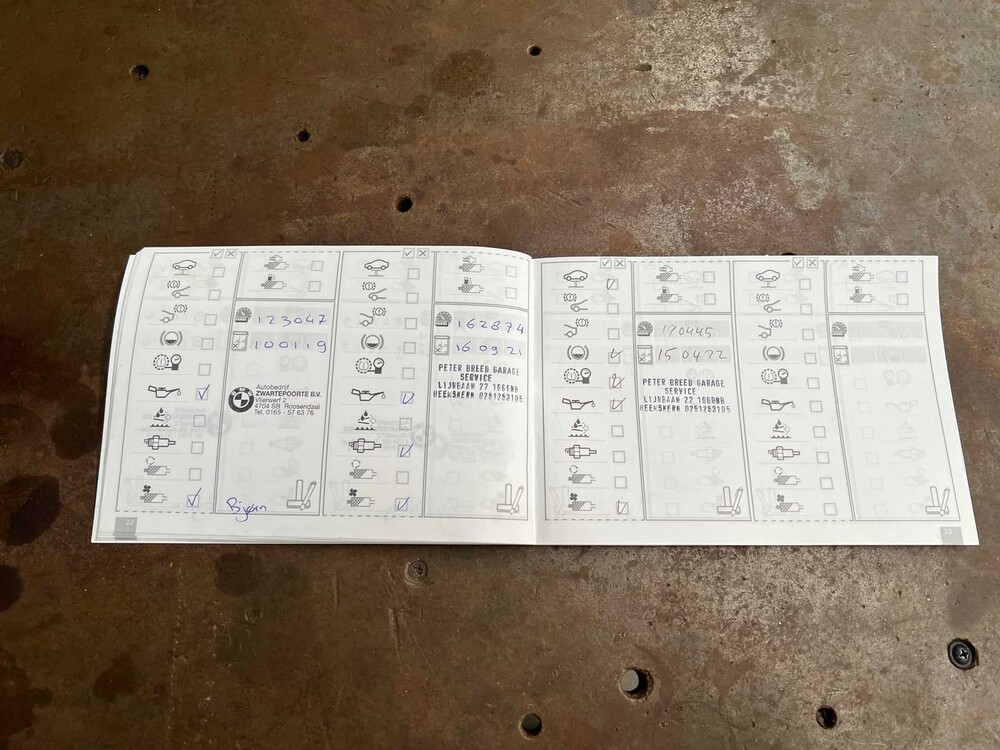 123047
100119
Autobedrijf
ZWARTEPOORTE B.V.
Vlierwert 2
4704 SB Roosendaal
Tel. 0165 - 57 63 76
Bjorn
22
162874
160921
PETER BREED GARAGE
SERVICE
LIJNBAAN 27 1969NB
HEEMSKERK 0251253105
190445
150422
PETER BREED GARAGE
SERVICE
LIJNBAAN 27 1969NB
HEEMSKERK 0251253105
23